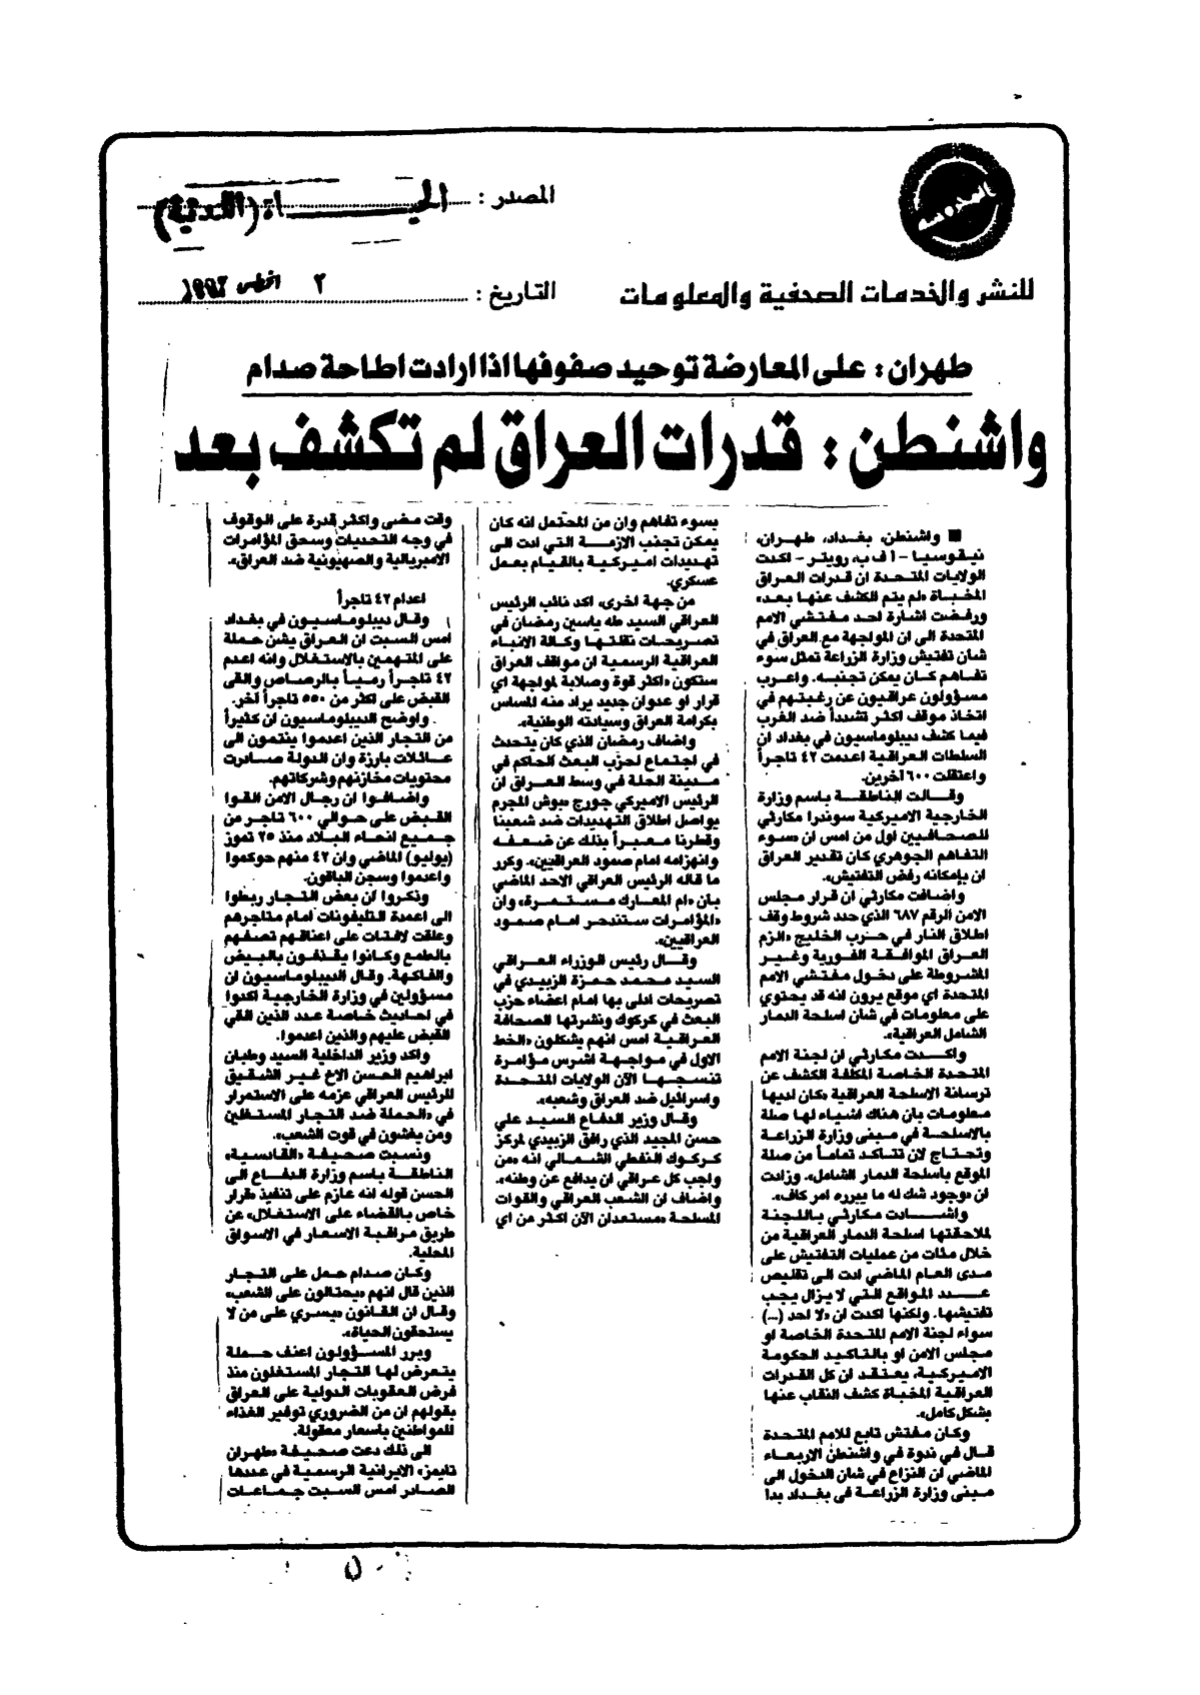 المحروسة
للنشر والخدمات الصحفية والمعلومات
المصدر : الحيـــــاة (اللندنية)
التاريخ : ٢ اغسطس ١٩٩٢
طهران : على المعارضة توحيد صفوفها اذا ارادت اطاحة صدام
واشنطن : قدرات العراق لم تكشف بعد
■ واشنطن، بغداد، طهران،
نيقوسيا - ا ف ب، رويتر - اكدت
الولايات المتحدة ان قدرات العراق
المخباة «لم يتم الكشف عنها بعد»
ورفضت اشارة احد مفتشي الامم
المتحدة الى ان المواجهة مع العراق في
شان تفتيش وزارة الزراعة تمثل سوء
تفاهم كان يمكن تجنبه. واعرب
مسؤولون عراقيون عن رغبتهم في
اتخاذ موقف اكثر تشدداً ضد الغرب
فيما كشف ديبلوماسيون في بغداد ان
السلطات العراقية اعدمت ٤٢ تاجراً
واعتقلت ٦٠٠ اخرين.
وقالت الناطقة باسم وزارة
الخارجية الاميركية سوندرا مكارثي
للصحافيين اول من امس ان «سوء
التفاهم الجوهري كان تقدير العراق
ان بإمكانه رفض التفتيش».
واضافت مكارثي ان قرار مجلس
الامن الرقم ٦٨٧ الذي حدد شروط وقف
اطلاق النار في حرب الخليج «الزم
العراق الموافقة الفورية وغير
المشروطة على دخول مفتشي الامم
المتحدة اي موقع يرون انه قد يحتوي
على معلومات في شان اسلحة الدمار
الشامل العراقية».
واكدت مكارثي ان لجنة الامم
المتحدة الخاصة المكلفة الكشف عن
ترسانة الاسلحة العراقية «كان لديها
معلومات بان هناك اشياء لها صلة
بالاسلحة في مبنى وزارة الزراعة
وتحتاج لان تتاكد تماماً من صلة
الموقع باسلحة الدمار الشامل». وزادت
ان «وجود شك له ما يبرره امر كاف».
واشادت مكارثي باللجنة
لملاحقتها اسلحة الدمار العراقية من
خلال مئات من عمليات التفتيش على
مدى العام الماضي ادت الى تقليص
عدد المواقع التي لا يزال يجب
تفتيشها. ولكنها اكدت ان «لا احد (...)
سواء لجنة الامم المتحدة الخاصة او
مجلس الامن او بالتاكيد الحكومة
الاميركية، يعتقد ان كل القدرات
العراقية المخباة كشف النقاب عنها
بشكل كامل».
وكان مفتش تابع للامم المتحدة
قال في ندوة في واشنطن الاربعاء
الماضي ان النزاع في شان الدخول الى
مبنى وزارة الزراعة في بغداد بدا
بسوء تفاهم وان من المحتمل انه كان
يمكن تجنب الازمة التي ادت الى
تهديدات اميركية بالقيام بعمل
عسكري.
من جهة اخرى، اكد نائب الرئيس
العراقي السيد طه ياسين رمضان في
تصريحات نقلتها وكالة الانباء
العراقية الرسمية ان مواقف العراق
ستكون «اكثر قوة وصلابة لمواجهة اي
قرار او عدوان جديد يراد منه المساس
بكرامة العراق وسيادته الوطنية».
واضاف رمضان الذي كان يتحدث
في اجتماع لحزب البعث الحاكم في
مدينة الحلة في وسط العراق ان
الرئيس الاميركي جورج «بوش المجرم
يواصل اطلاق التهديدات ضد شعبنا
وقطرنا معبراً بذلك عن ضعفه
وانهزامه امام صمود العراقيين». وكرر
ما قاله الرئيس العراقي الاحد الماضي
بان «ام المعارك مستمرة» وان
«المؤامرات ستندحر امام صمود
العراقيين».
وقال رئيس الوزراء العراقي
السيد محمد حمزة الزبيدي في
تصريحات ادلى بها امام اعضاء حزب
البعث في كركوك ونشرتها الصحافة
العراقية امس انهم يشكلون «الخط
الاول في مواجهة اشرس مؤامرة
تنسجها الآن الولايات المتحدة
واسرائيل ضد العراق وشعبه».
وقال وزير الدفاع السيد علي
حسن المجيد الذي رافق الزبيدي لمركز
كركوك النفطي الشمالي انه «من
واجب كل عراقي ان يدافع عن وطنه».
واضاف ان الشعب العراقي والقوات
المسلحة «مستعدان الآن اكثر من اي
وقت مضى واكثر قدرة على الوقوف
في وجه التحديات وسحق المؤامرات
الامبريالية والصهيونية ضد العراق».
اعدام ٤٢ تاجراً
وقال ديبلوماسيون في بغداد
امس السبت ان العراق يشن حملة
على المتهمين بالاستغلال وانه اعدم
٤٢ تاجراً رمياً بالرصاص والقى
القبض على اكثر من ٥٥٠ تاجراً آخر.
واوضح الديبلوماسيون ان كثيراً
من التجار الذين اعدموا ينتمون الى
عائلات بارزة وان الدولة صادرت
محتويات مخازنهم وشركاتهم.
واضافوا ان رجال الامن القوا
القبض على حوالي ٦٠٠ تاجر من
جميع انحاء البلاد منذ ٢٥ تموز
(يوليو) الماضي وان ٤٢ منهم حوكموا
واعدموا وسجن الباقون.
وذكروا ان بعض التجار ربطوا
الى اعمدة التليفونات امام متاجرهم
وعلقت لافتات على اعناقهم تصفهم
بالطمع وكانوا يقذفون بالبيض
والفاكهة. وقال الديبلوماسيون ان
مسؤولين في وزارة الخارجية اكدوا
في احاديث خاصة عدد الذين القي
القبض عليهم والذين اعدموا.
واكد وزير الداخلية السيد وطبان
ابراهيم الحسن الاخ غير الشقيق
للرئيس العراقي عزمه على الاستمرار
في «الحملة ضد التجار المستغلين
ومن يغشون في قوت الشعب».
ونسبت صحيفة «القادسية»
الناطقة باسم وزارة الدفاع الى
الحسن قوله انه عازم على تنفيذ «قرار
خاص بالقضاء على الاستغلال» عن
طريق مراقبة الاسعار في الاسواق
المحلية.
وكان صدام حمل على التجار
الذين قال انهم «يحتالون على الشعب»
وقال ان القانون «يسري على من لا
يستحقون الحياة».
وبرر المسؤولون اعنف حملة
يتعرض لها التجار المستغلون منذ
فرض العقوبات الدولية على العراق
بقولهم ان من الضروري توفير الغذاء
للمواطنين باسعار معقولة.
الى ذلك دعت صحيفة «طهران
تايمز» الايرانية الرسمية في عددها
الصادر امس السبت جماعات